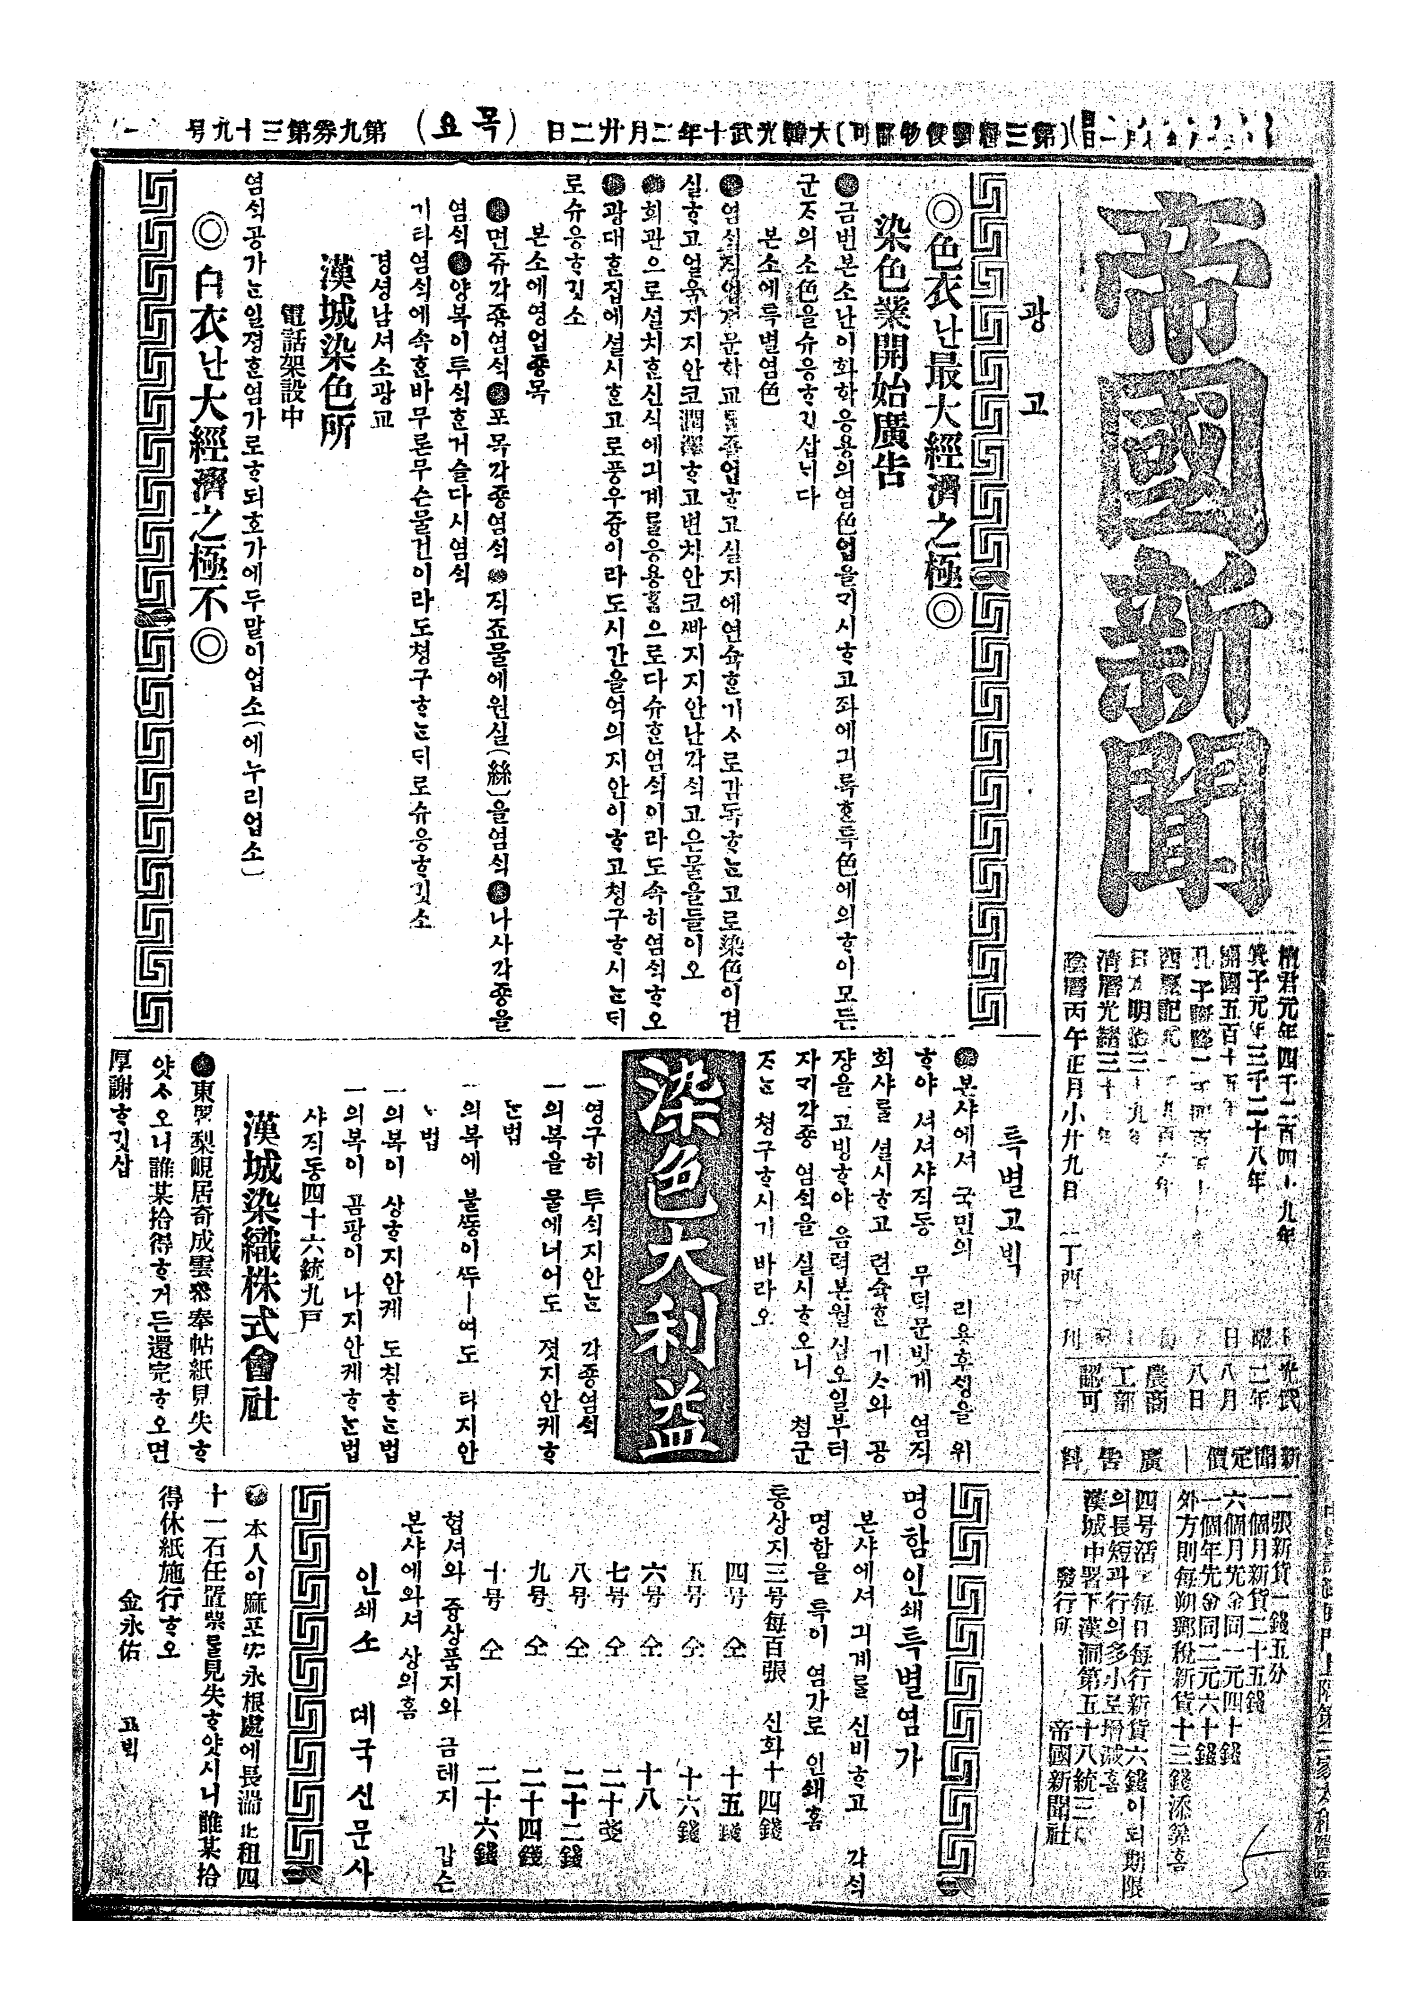 大韓光武十年二月廿二日 (목요) 第九券第三十九号
帝國新聞
檀君元年四千二百四十九年
箕子元年三千二十八年
開國五百十五年
陰曆丙午正月小廿九日
光武二年八月八日
農商工部認可
新聞定價
一張新貨一錢五分
一個月新貨二十五錢
六個月先金同一元四十錢
一個年先金同二元六十錢
外方則每朔郵稅新貨十三錢添算홈
廣告料
四号活字每日每行新貨六錢이되期限
의長短과行의多小로增減홈
漢城中署下漢洞第五十八統三戶
發行所 帝國新聞社
광고
◎色衣난最大經濟之極◎
染色業開始廣告
●금번본소난이화학응용의염色업을ᄀᆡ시ᄒᆞ고좌에긔록ᄒᆞᆫ특色에의ᄒᆞ야모든
군ᄌᆞ의소色을슈응ᄒᆞ깃삽ᄂᆡ다
본소에특별염色
●염ᄉᆡᆨ직업젼문학교를졸업ᄒᆞ고실지에연슉ᄒᆞᆫ기ᄉᆞ로감독ᄒᆞ는고로染色이견
실ᄒᆞ고얼욱지지안코潤澤ᄒᆞ고변치안코ᄲᅡ지지안난각ᄉᆡᆨ고은물을들이오
●회관으로설치ᄒᆞᆫ신식에긔계를응용홈으로다슈ᄒᆞᆫ염ᄉᆡᆨ이라도속히염ᄉᆡᆨᄒᆞ오
●광대ᄒᆞᆫ집에설시ᄒᆞ고로풍우즁이라도시간을억의지안이ᄒᆞ고청구ᄒᆞ시는ᄃᆡ
로슈응ᄒᆞ깃소
본소에영업죵목
●면쥬각죵염ᄉᆡᆨ●포목각죵염ᄉᆡᆨ●직죠물에원실(絲)을염ᄉᆡᆨ●나사각죵을
염ᄉᆡᆨ●양복이투ᄉᆡᆨᄒᆞᆫ거슬다시염ᄉᆡᆨ
기타염ᄉᆡᆨ에속ᄒᆞᆫ바무론무슨물건이라도쳥구ᄒᆞ는ᄃᆡ로슈응ᄒᆞ깃소
경셩남셔소광교
漢城染色所
電話架設中
◎白衣난大經濟之極不◎
염ᄉᆡᆨ공가는일졍ᄒᆞᆫ염가로ᄒᆞ되호가에두말이업소(에누리업소)
특별고ᄇᆡᆨ
●본샤에셔 국민의 리용후ᄉᆡᆼ을 위
ᄒᆞ야 셔셔샤직동 무덕문밧게 염직
회샤를 셜시ᄒᆞ고 련슉ᄒᆞᆫ 기ᄉᆞ와 공
쟝을 고빙ᄒᆞ야 음력본월십오일부터
자긔각죵 염ᄉᆡᆨ을 실시ᄒᆞ오니 쳠군
ᄌᆞ는 쳥구ᄒᆞ시기 바라오
染色大利益
一영구히 투ᄉᆡᆨ지안는 각죵염ᄉᆡᆨ
一의복을 물에너어도 졋지안케ᄒᆞ
는법
一의복에 불ᄯᅩᆼ이ᄯᅱ여도 타지안
는법
一의복이 상ᄒᆞ지안케 도침ᄒᆞ는법
一의복이 곰팡이 나지안케ᄒᆞ는법
샤직동四十六統九戶
漢城染織株式會社
●東門梨峴居奇成雲 奉帖紙見失ᄒᆞ
얏ᄉᆞ오니誰某拾得ᄒᆞ거든還完ᄒᆞ오면
厚謝ᄒᆞ깃삽
명함인쇄특별염가
본샤에셔 긔계를 신비ᄒᆞ고 각ᄉᆡᆨ
명함을 특이 염가로 인쇄홈
통상지三号每百張 신화十四錢
四号 仝 十五錢
五号 仝 十六錢
六号 仝 十八
七号 仝 二十錢
八号 仝 二十二錢
九号 仝 二十四錢
十号 仝 二十六錢
협셔와 즁상품지와 금테지 갑슨
본샤에와셔 상의홈
인쇄소 뎨국신문사
●本人이麻포安永根處에長湍北租四
十一石任置票를見失ᄒᆞ얏시니誰某拾
得休紙施行ᄒᆞ오
金永佑 고ᄇᆡᆨ